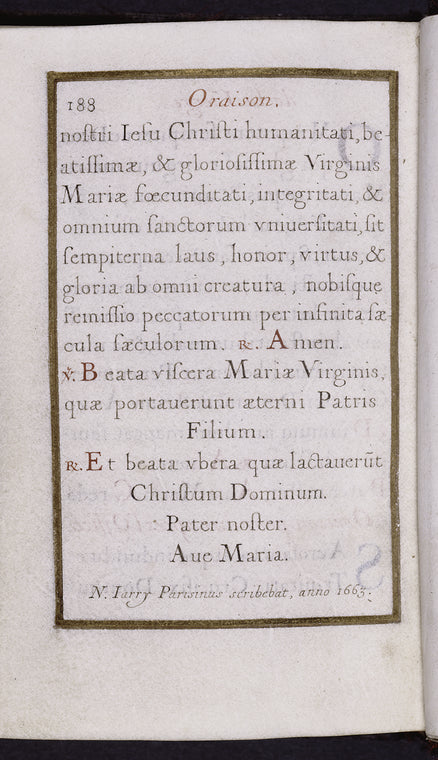 188 Oraison.
noſtri Ieſu Chriſti humanitati, be-
atiſſimæ, & glorioſiſſimæ Virginis
Mariæ fœcunditati, integritati, &
omnium ſanctorum vniuerſitati, ſit
ſempiterna laus, honor, virtus, &
gloria ab omni creatura, nobiſque
remiſſio peccatorum per infinita ſæ-
cula ſæculorum. ℟. Amen.
℣. Beata viſcera Mariæ Virginis,
quæ portauerunt æterni Patris
Filium.
℟. Et beata vbera quæ lactauerũt
Chriſtum Dominum.
Pater noſter.
Aue Maria.
N. Iarry Parisinus scribebat, anno 1663.